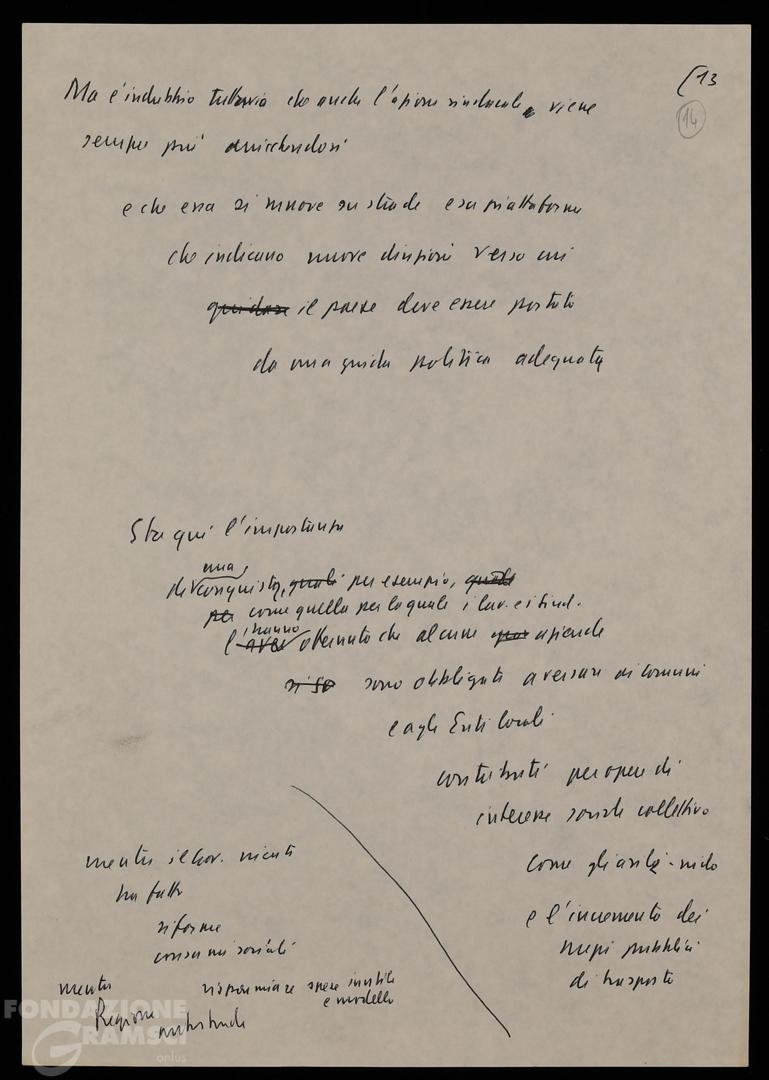 (13
14
Ma è indubbio tuttavia che anche l'azione sindacale viene
sempre più arricchendosi
e che essa si muove su strade e su piattaforme
che indicano nuove direzioni verso cui
guidare il paese deve essere portato
da una guida politica adeguata
Sta qui l'importanza
una
di conquista, quali per esempio, quelle
per come quella per la quale i lav. e i sind.
hanno
ottenuto che alcune aziende
si so sono obbligate a versare ai comuni
e agli Enti locali
contributi per opere di
interesse sociale collettivo
come gli asili-nido
e l'incremento dei
mezzi pubblici
di trasporto
mentre il Gov. niente
ha fatto
riforme
consumi sociali
mentre risparmiare spese inutili
e modello
Regione
autostrade
FONDAZIONE
GRAMSCI
onlus